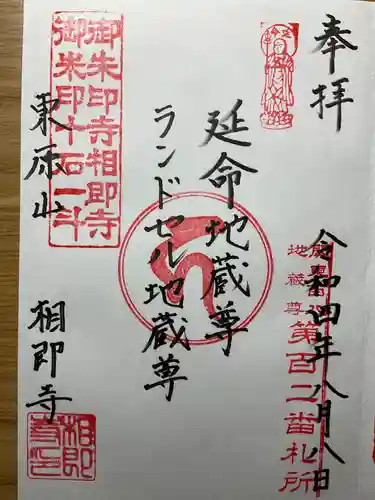 奉拝
令和四年八月八日
地蔵尊第百二番札所
延命地蔵尊
ランドセル地蔵尊
御朱印寺相即寺
御朱印十石一斗
東原山 相即寺
相即寺印